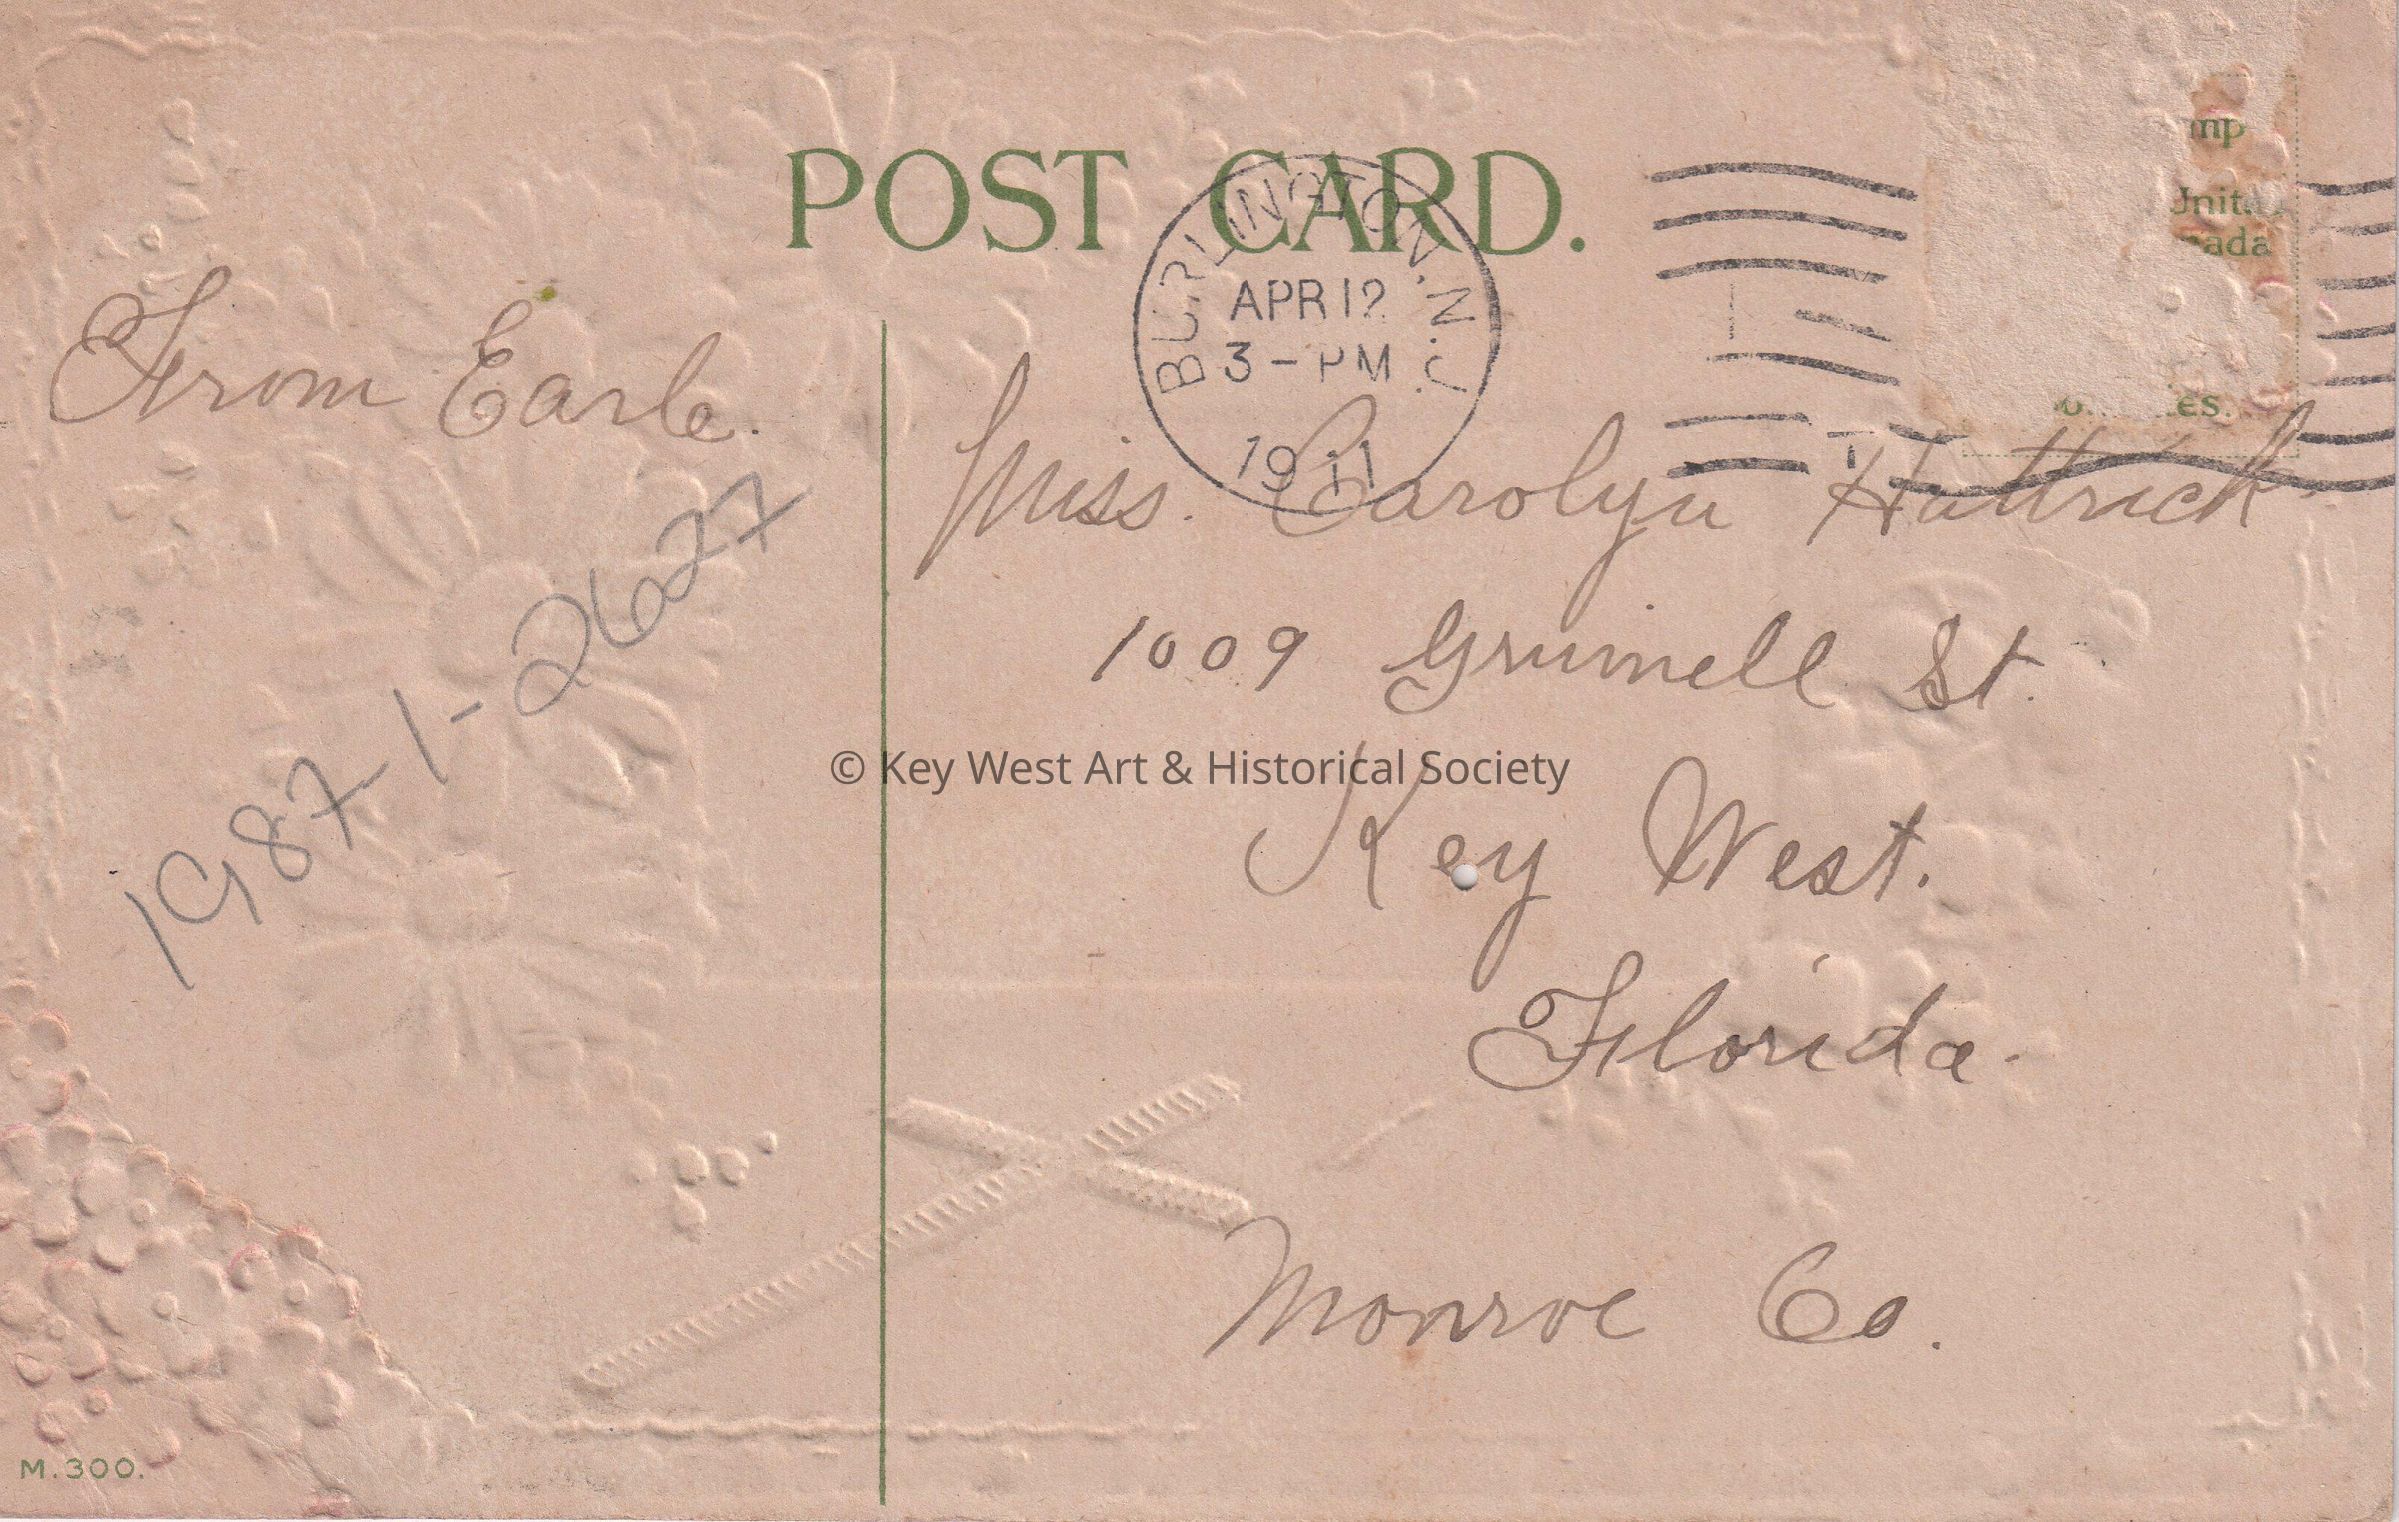 POST CARD.
BURLINGTON, N.J.
APR 12
3 - PM
1911
mp
Unite
nada
es.
From Earle.
Miss. Carolyn Hattrick.
1009 Grinnell St.
1987-1-2627
© Key West Art & Historical Society
Key West.
Florida.
Monroe Co.
M.300.